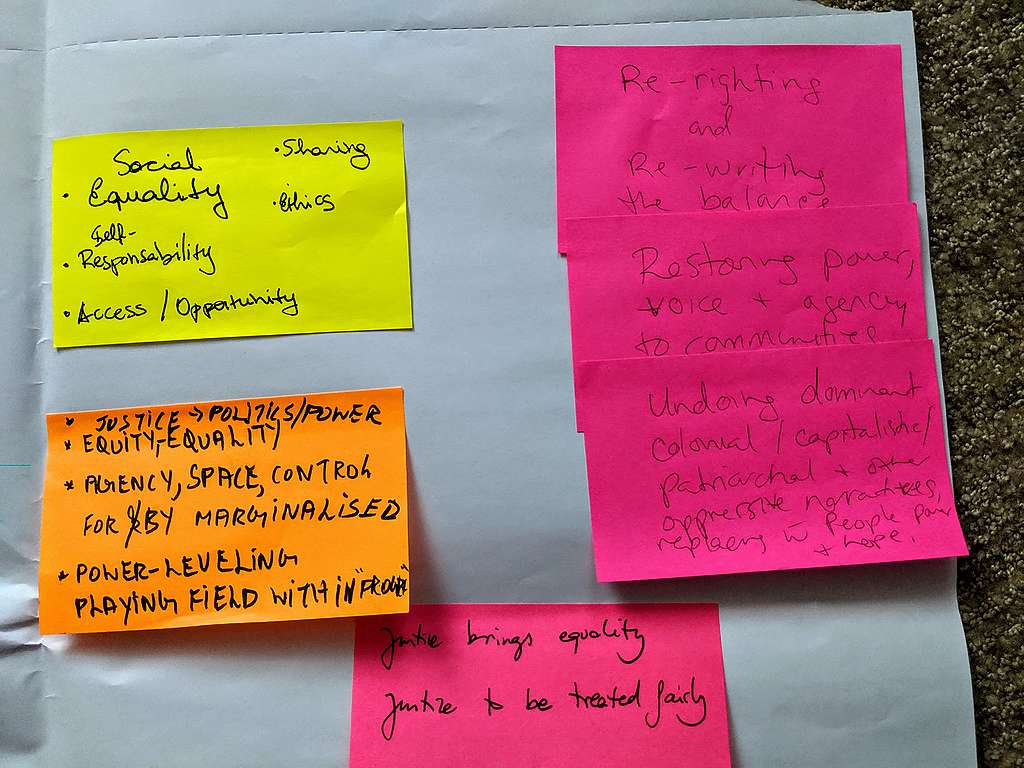 Social
• Equality
Self-
• Responsability
• Access / Opportunity
• Sharing
• Ethics
* JUSTICE → POLITICS/POWER
* EQUITY, EQUALITY
* AGENCY, SPACE, CONTROL
FOR & BY MARGINALISED
* POWER-LEVELING
PLAYING FIELD WITHIN
Re-righting
and
Re-writing
the balance
Restoring power,
voice + agency
to communities
Undoing dominant
colonial / capitalistic /
patriarchal + other
oppressive narratives,
replacing w People power
+ hope.
Justice brings equality
Justice to be treated fairly